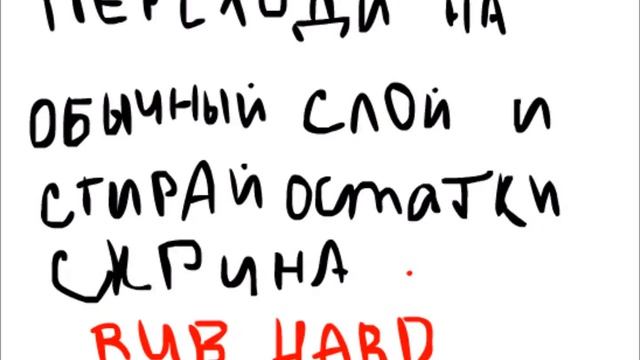 ПЕРЕХОДИ НА
ОБЫЧНЫЙ СЛОЙ И
СТИРАЙ ОСТАТКИ
СКРИНА
RUB HARD